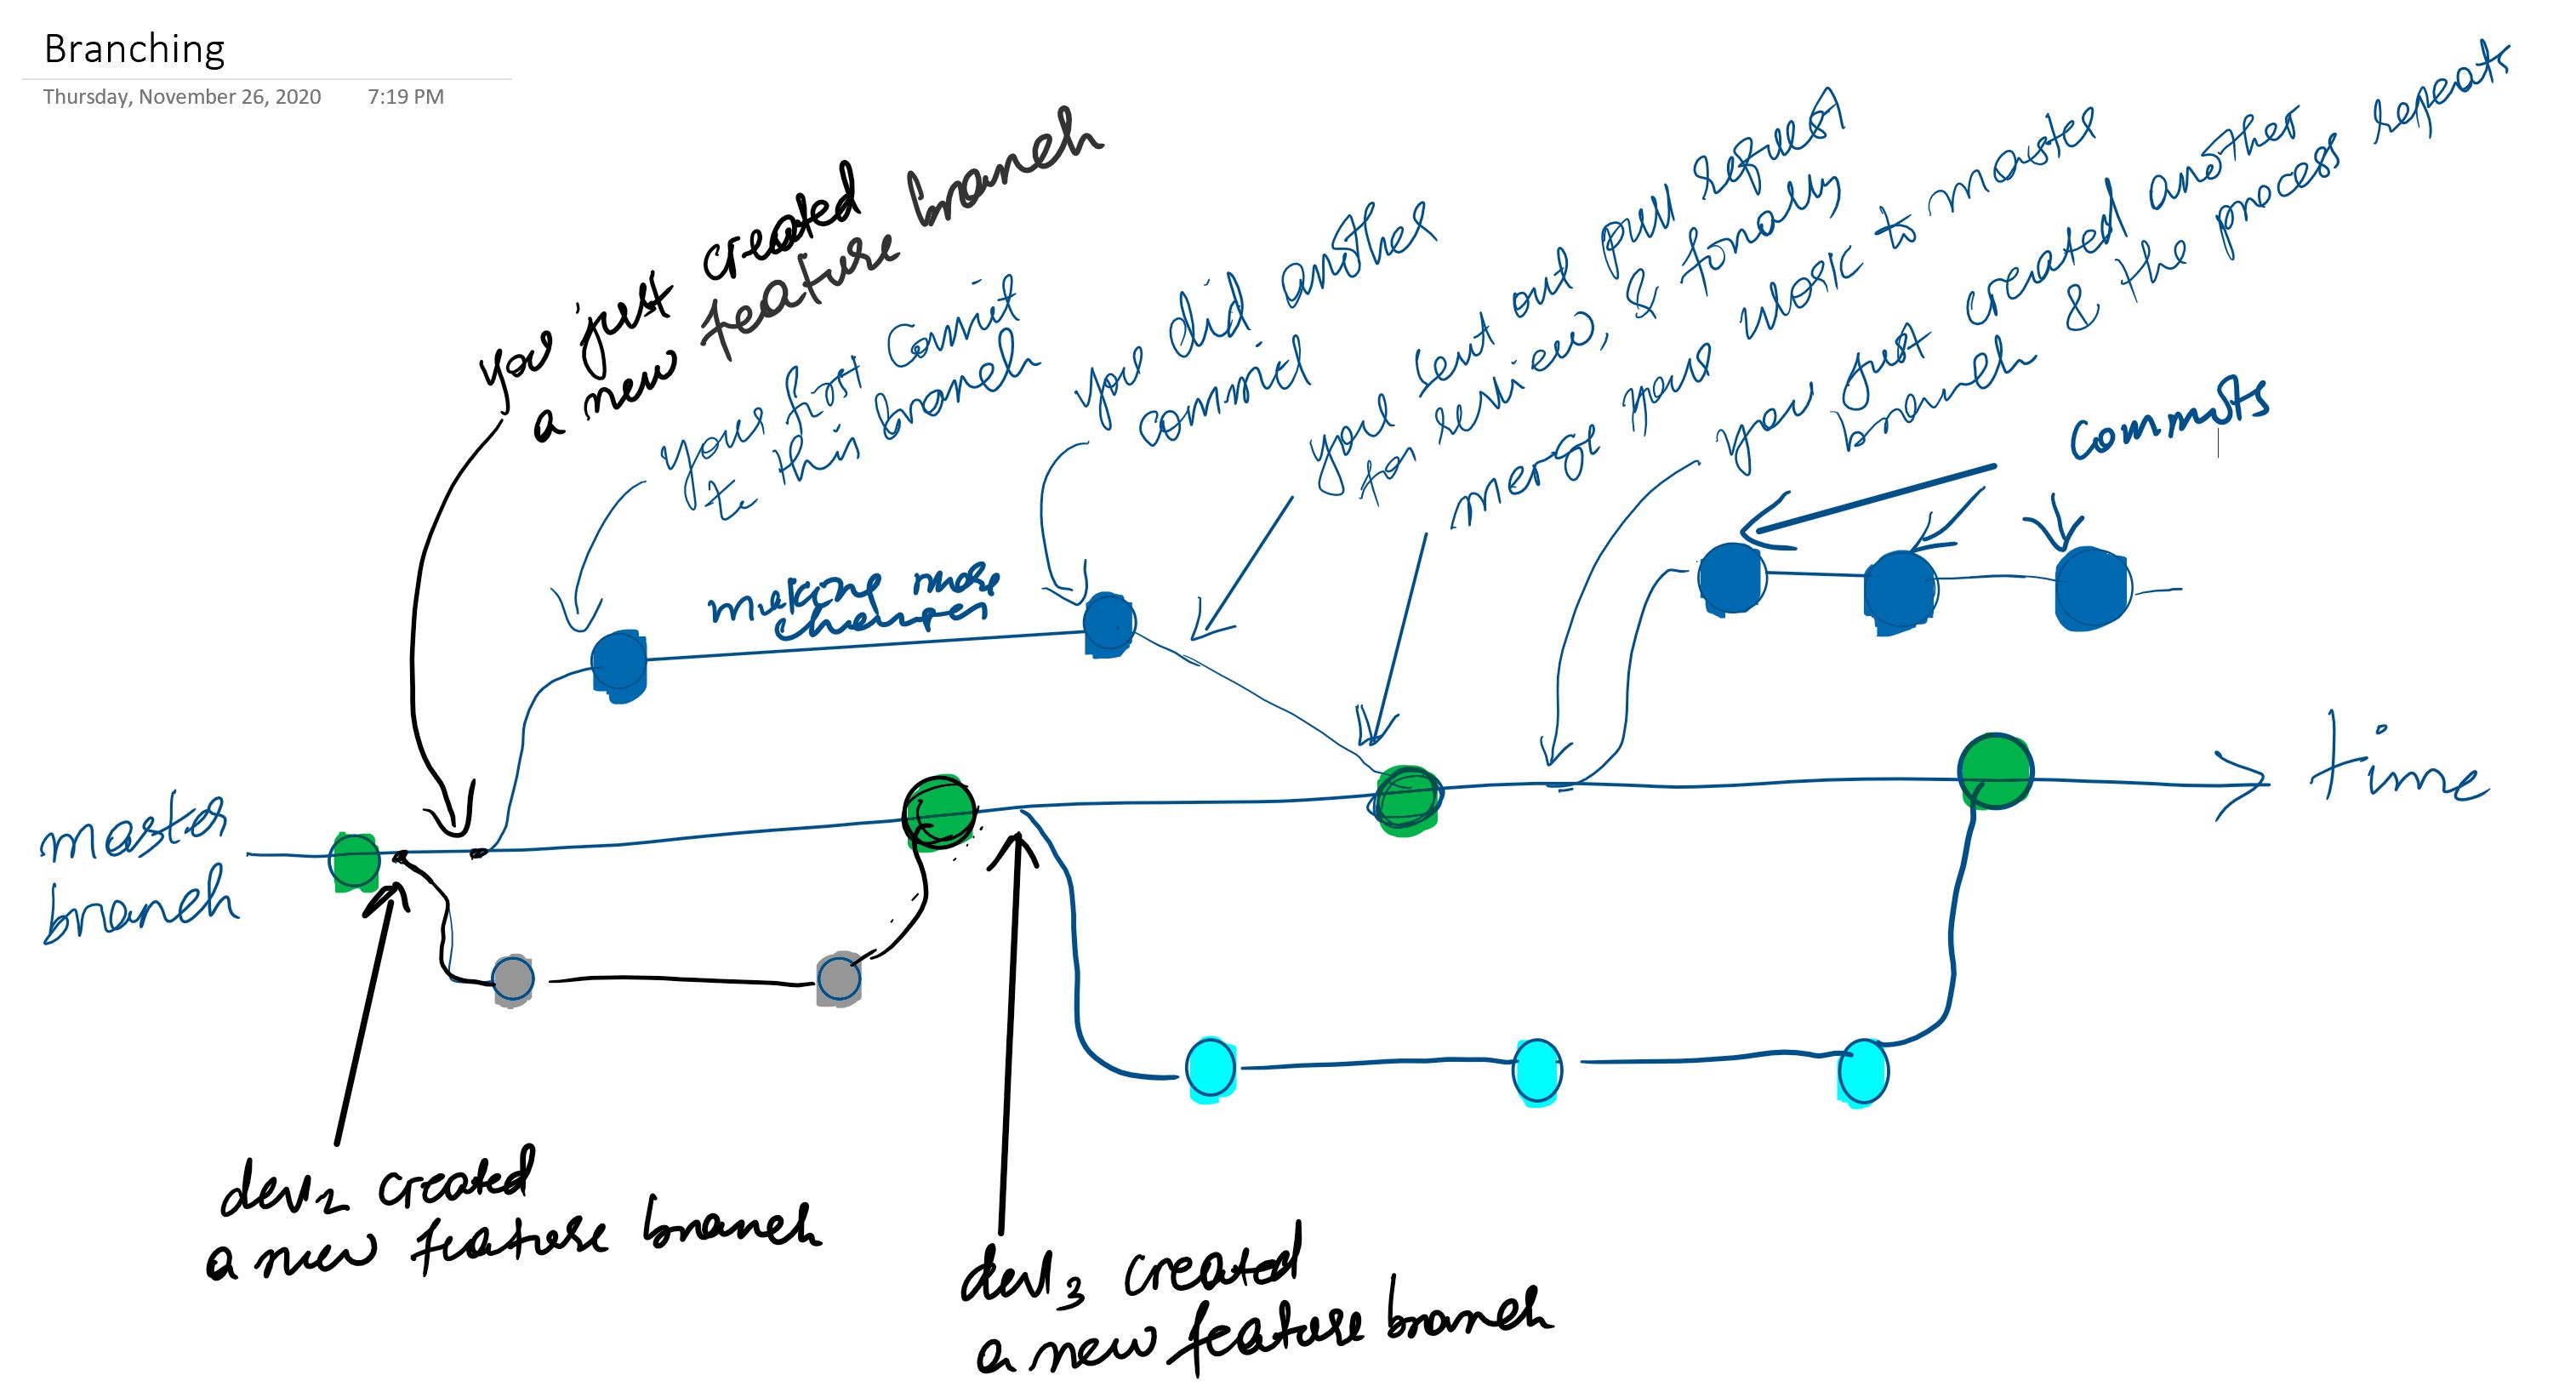 Branching
Thursday, November 26, 2020 7:19 PM
you just created
a new feature branch
your first Commit
to this branch
you did another
commit
you sent out pull request
for review, & finally
merge your work to master
you just created another
branch & the process repeats
commits
making more
changes
master
branch
time
dev2 created
a new feature branch
dev3 created
a new feature branch